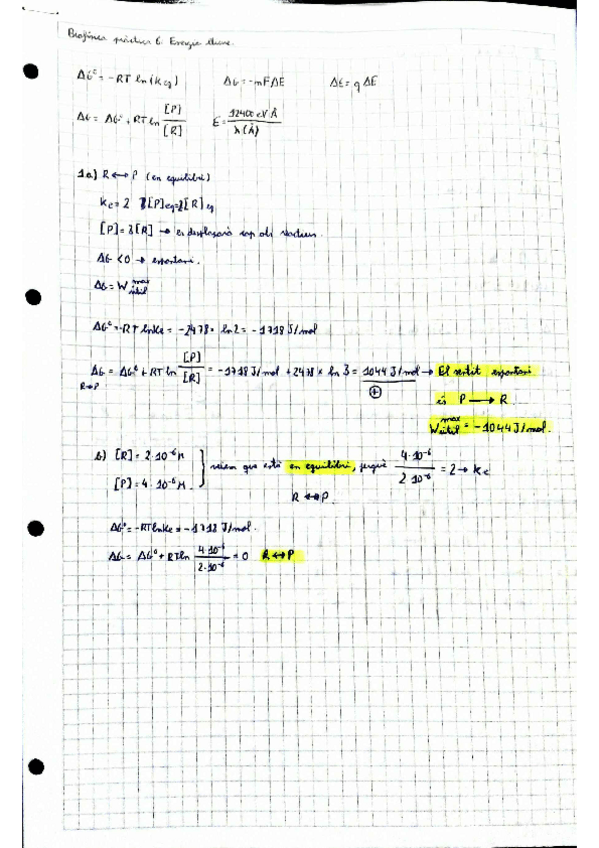 Biofísica pràctica 6: Energia lliure.
ΔG° = -RT ln(Keq)   ΔG = -nFΔE   ΔE = qΔE
ΔG = ΔG° + RT ln [P]/[R]   E = 12400 eV Å / λ(Å)
1a) R ↔ P (en equilibri)
Ke = 2   [P]eq = 2[R]eq
[P] = 3[R] → es desplaçarà cap als reactius.
ΔG < 0 → espontani.
ΔG = W útil max
ΔG° = -RT lnKe = -2478 · ln2 = -1718 J/mol
ΔG = ΔG° + RT ln [P]/[R] = -1718 J/mol + 2478 × ln 3 = 1044 J/mol → El sentit espontani
R→P   ⊕   és P → R
W útil max = -1044 J/mol.
b) [R] = 2·10⁻⁶ M
[P] = 4·10⁻⁶ M.   } veiem que està en equilibri, perquè 4·10⁻⁶ / 2·10⁻⁶ = 2 → Ke
R ↔ P
ΔG° = -RT lnKe = -1718 J/mol.
ΔG = ΔG° + RT ln 4·10⁻⁶ / 2·10⁻⁶ = 0   R ↔ P